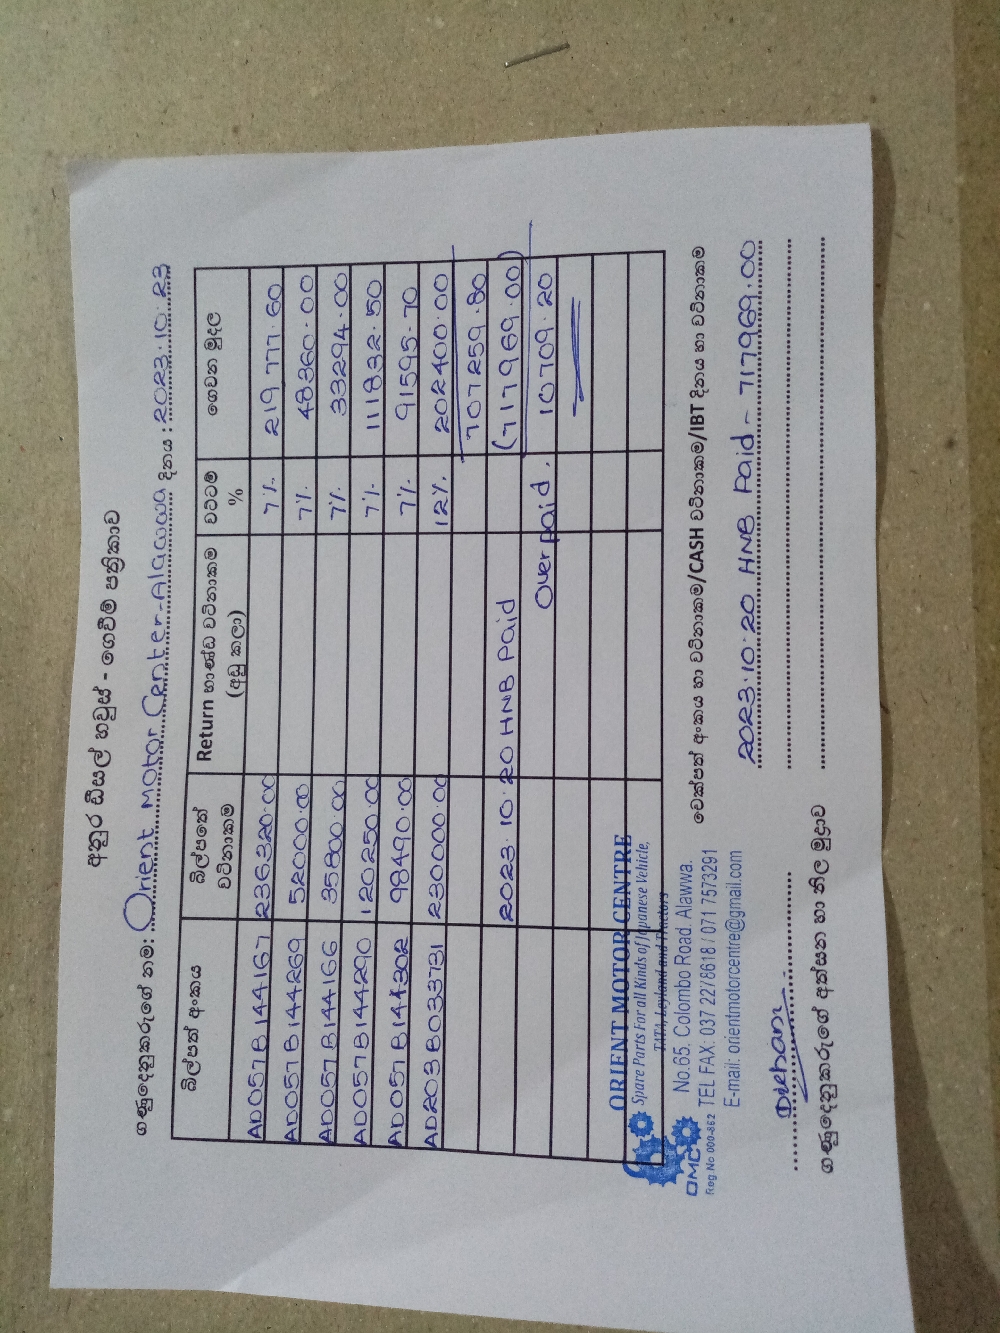 අනුර ඩීසල් හවුස් - ගෙවීම් පත්‍රිකාව
ගණුදෙනුකරුගේ නම: Orient Motor Center-Alawwa දිනය : 2023.10.23
බිල්පත් අංකය බිල්පතේ වටිනාකම Return භාණ්ඩ වටිනාකම (අඩු කලා) වට්ටම % ගෙවන මුදල
AD057B144167 236320.00 7% 219777.60
AD057B144269 52000.00 7% 48360.00
AD057B144166 35800.00 7% 33294.00
AD057B144290 120250.00 7% 111832.50
AD057B144302 98490.00 7% 91595.70
AD203B033731 230000.00 12% 202400.00
707259.80
2023.10.20 HNB Paid (717969.00)
Over paid. 10709.20
ORIENT MOTOR CENTRE
Spare Parts For all Kinds of Japanese Vehicle,
TATA, Leyland and Tractors
OMC No.65. Colombo Road. Alawwa.
Reg No 000-862 TEL FAX: 037 2278618 / 071 7573291
E-mail: orientmotorcentre@gmail.com
චෙක්පත් අංකය හා වටිනාකම/CASH වටිනාකම/IBT දිනය හා වටිනාකම
2023.10.20 HNB Paid - 717969.00
ගණුදෙනුකරුගේ අත්සන හා නිල මුද්‍රාව